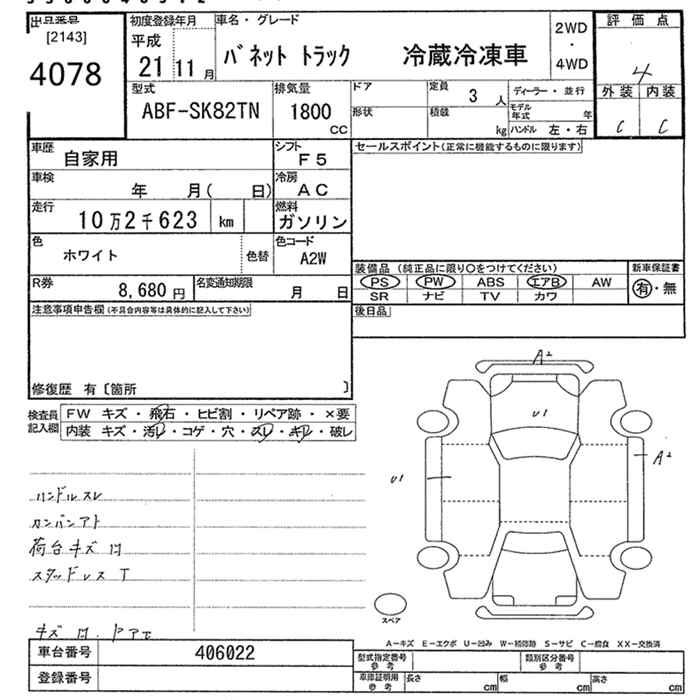 出品番号
[2143]
4078
初度登録年月
平成
21 11 月
車名・グレード
バネット トラック 冷蔵冷凍車
2WD
・
4WD
評価点
4
外装 内装
C C
型式
ABF-SK82TN
排気量
1800
CC
ドア
形状
定員
3 人
積載
kg
ディーラー・並行
モデル年式 年
ハンドル 左・右
車歴 自家用
シフト F5
セールスポイント(正常に機能するものに限ります)
車検 年 月( 日)
冷房 AC
走行 10万2千623 km
燃料 ガソリン
色 ホワイト 色替
色コード A2W
装備品 (純正品に限り〇をつけてください)
新車保証書
PS PW ABS エアB AW
有・無
SR ナビ TV カワ
R券 8,680 円
名変通知期限 月 日
注意事項申告欄(不具合内容等は具体的に記入して下さい)
後日品
修復歴 有〔箇所 〕
検査員記入欄
FW キズ・飛石・ヒビ割・リペア跡・×要
内装 キズ・汚レ・コゲ・穴・スレ・キレ・破レ
A2
U1
U1
A2
ハンドルスレ
カンバンアト
荷台キズ 凹
スタッドレス T
キズ 凹.ドアモ
スペア
A-キズ E-エクボ U-凹み W-補修跡 S-サビ C-腐食 XX-交換済
車台番号 406022
登録番号
型式指定番号 参考
類別区分番号 参考
車庫証明用 参考 長さ cm 幅 cm 高さ cm